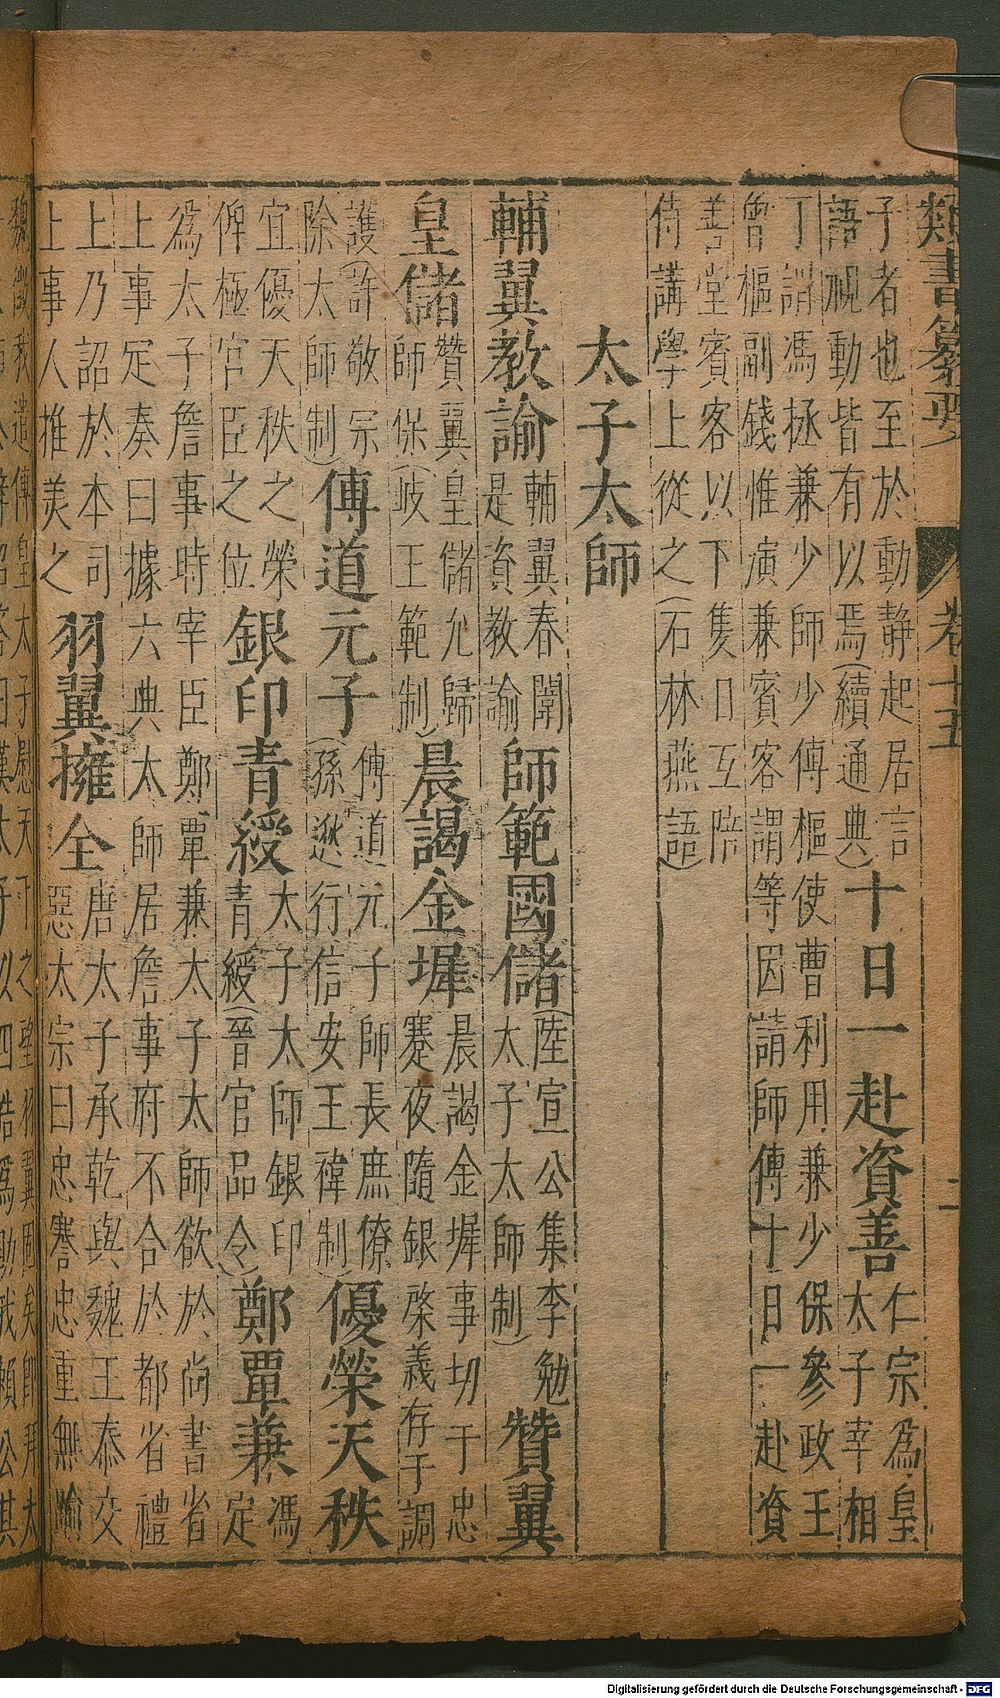 類書纂要 卷十五 二
子者也至於動靜起居言
語視動皆有以焉(續通典)十日一赴資善仁宗為皇
太子宰相
丁謂馮拯兼少師少傅樞使曹利用兼少保參政王
曾樞副錢惟演兼賓客謂等因請師傅十日一赴資
善堂賓客以下隻日互陪
侍講學上從之(石林燕語)
太子太師
輔翼教諭輔翼春闈
是資教諭師範國儲(陸宣公集李勉
太子太師制)贊翼
皇儲贊翼皇儲允歸
師保(岐王範制)晨謁金墀晨謁金墀事切于忠
蹇夜隨銀棨義存于調
護(許敬宗
除太師制)傳道元子傳道元子師長庶僚
(孫逖行信安王禕制)優榮天秩
宜優天秩之榮
俾極官臣之位銀印青綬太子太師銀印
青綬(晉官品令)鄭覃兼馮
定
為太子詹事時宰臣鄭覃兼太子太師欲於尚書省
上事定奏曰據六典太師居詹事府不合於都省禮
上乃詔於本司
上事人推美之羽翼擁全唐太子承乾與魏王泰交
惡太宗曰忠謇忠重無踰
魏徵我遣傅皇太子慰天下之望羽翼固矣即拜太
詔答曰漢太子以四皓為助我賴公其
Digitalisierung gefördert durch die Deutsche Forschungsgemeinschaft - DFG